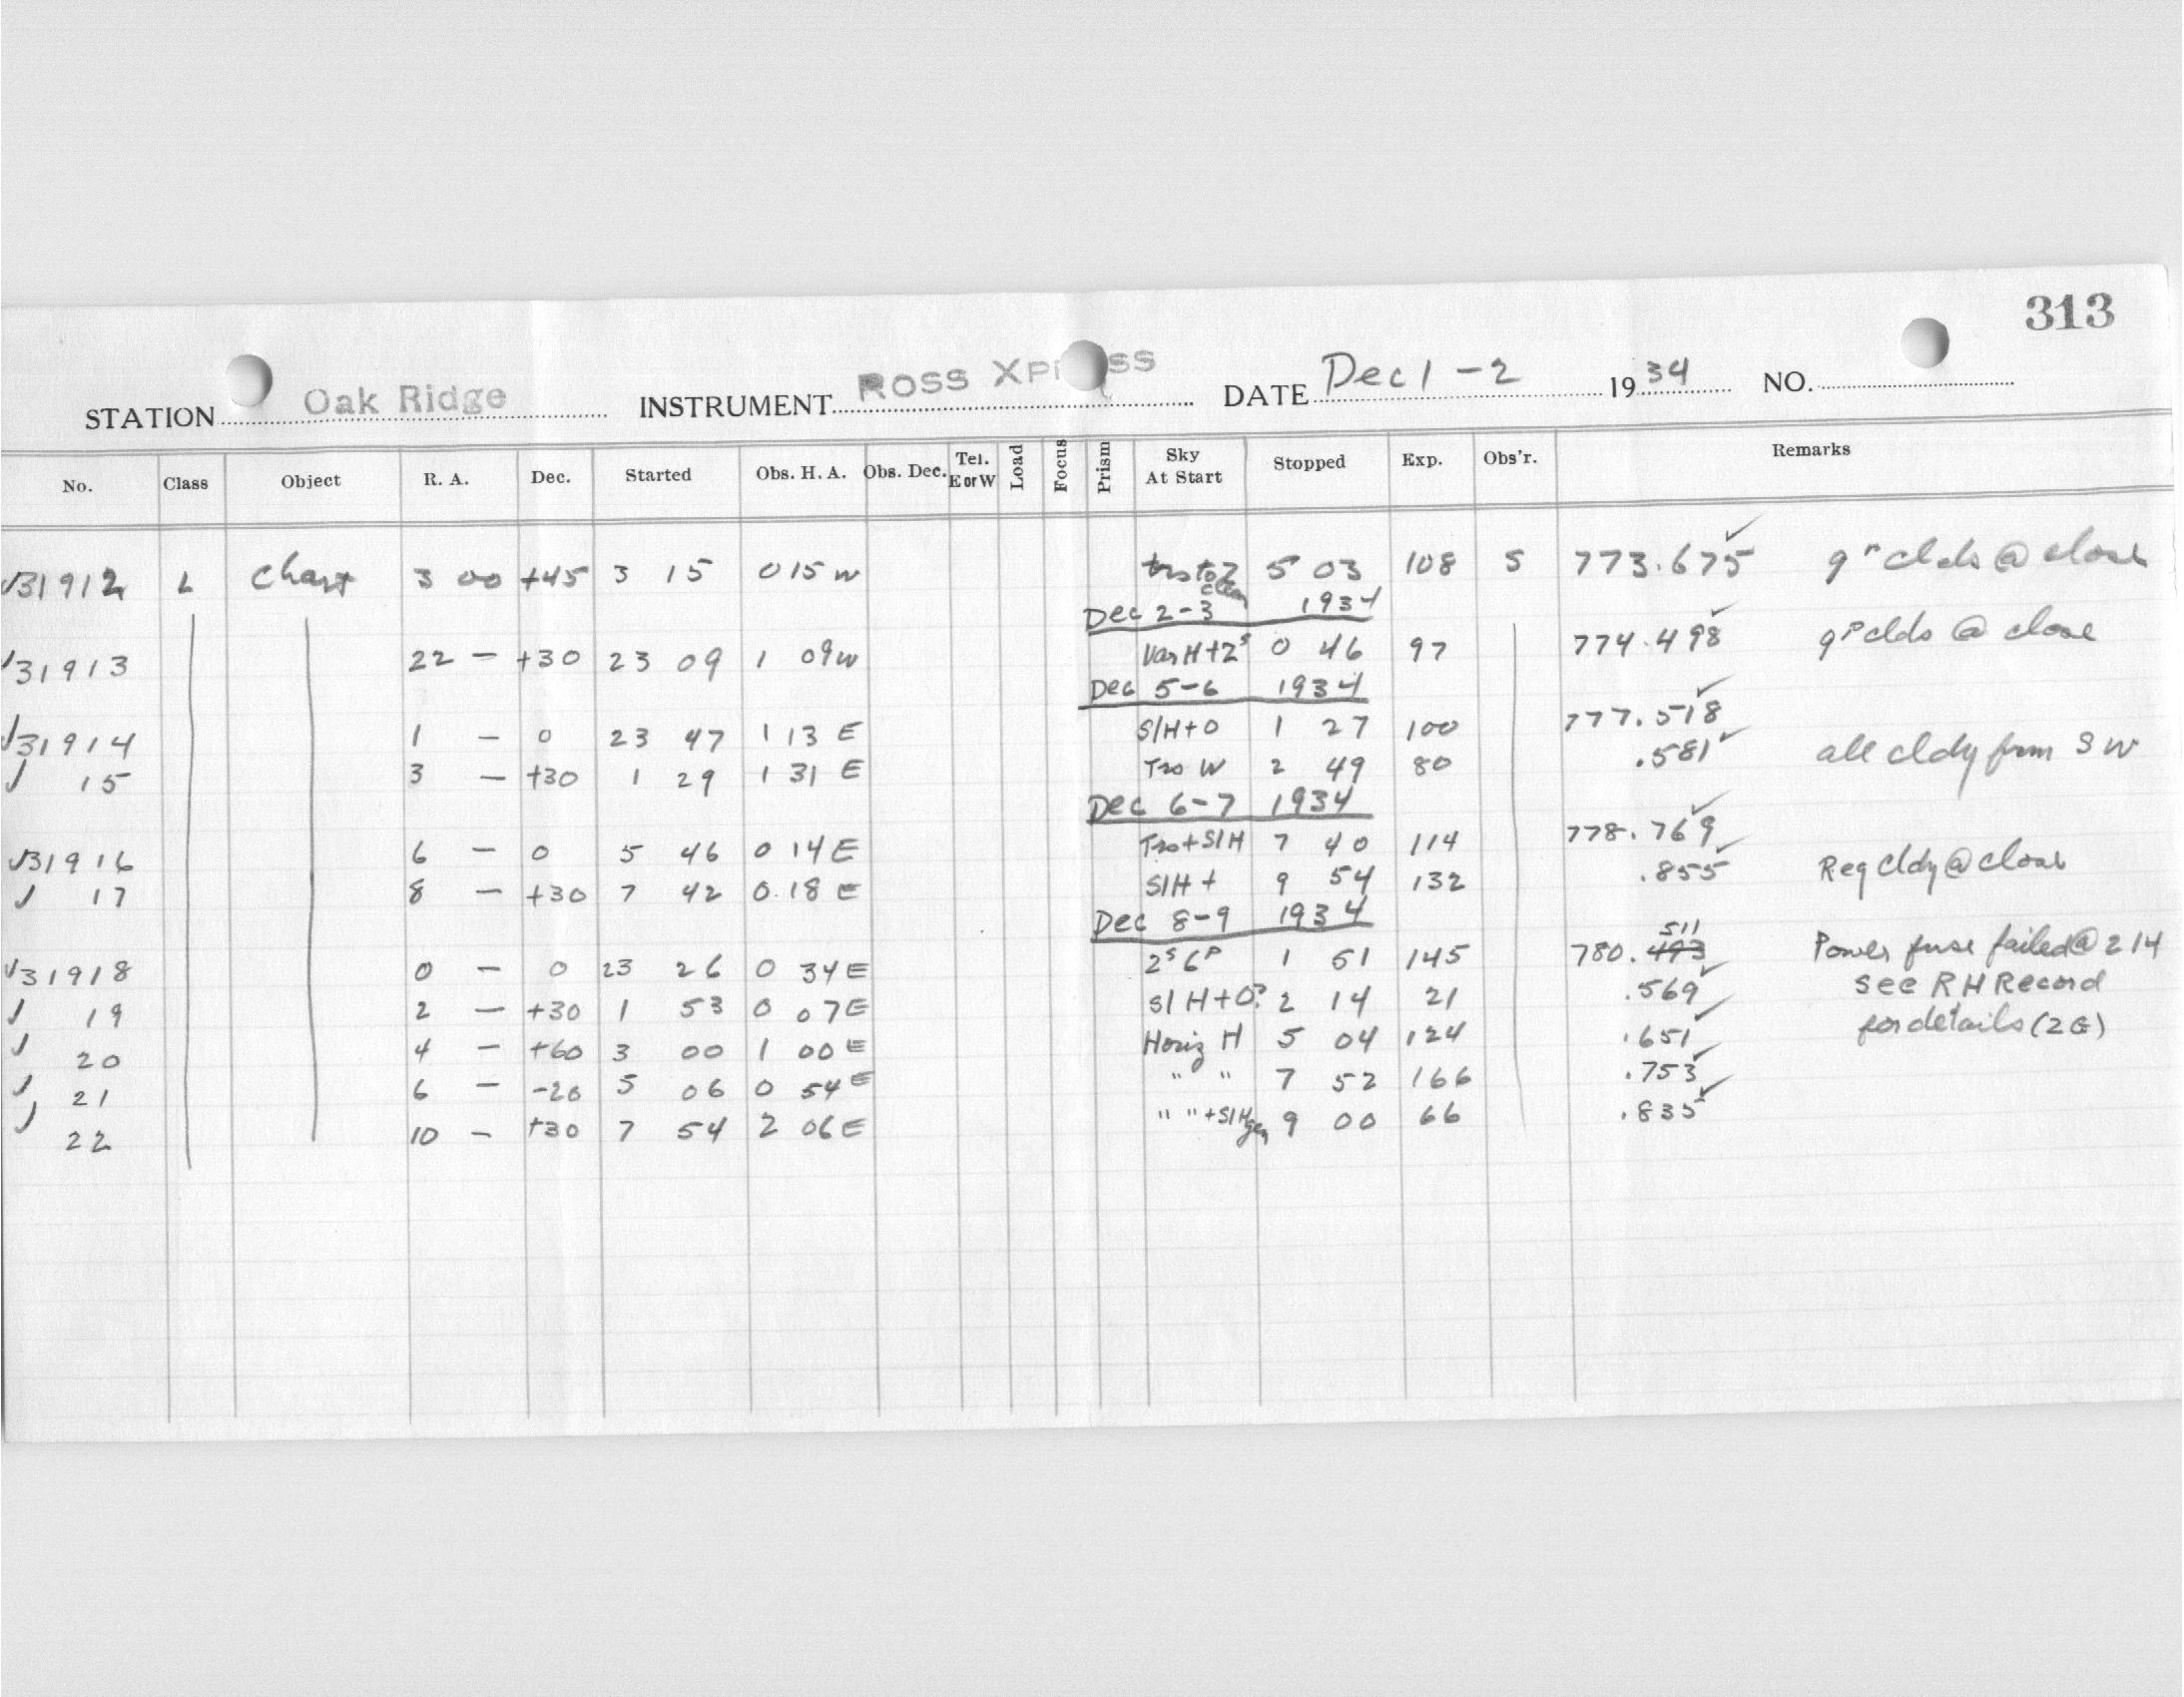 313
STATION Oak Ridge INSTRUMENT ROSS XPRESS DATE Dec 1-2 1934 NO.
No. Class Object R. A. Dec. Started Obs. H. A. Obs. Dec. Tel. E or W Load Focus Prism Sky At Start Stopped Exp. Obs'r. Remarks
√31912 L Chart 3 00 +45 3 15 0 15 W clear 5 03 108 S 773.675 ✓ clds @ close
Dec 2-3 1934
√31913 22 — +30 23 09 1 09 W Var H+2ˢ 0 46 97 774.498 ✓ 9ᵖ clds @ close
Dec 5-6 1934
√31914 1 — 0 23 47 1 13 E S/H+0 1 27 100 777.518 ✓
√ 15 3 — +30 1 29 1 31 E Tro W 2 49 80 .581 ✓ all cldy from SW
Dec 6-7 1934
√31916 6 — 0 5 46 0 14 E Tro+S/H 7 40 114 778.769 ✓
√ 17 8 — +30 7 42 0.18 E S/H + 9 54 132 .855 ✓ Reg cldy @ close
Dec 8-9 1934
√31918 0 — 0 23 26 0 34 E 2ˢ 6ᴾ 1 51 145 780.493 511 Power fuse failed @ 2 14
√ 19 2 — +30 1 53 0 07 E S/H+0? 2 14 21 .569 ✓ see RH Record
√ 20 4 — +60 3 00 1 00 E Horiz H 5 04 124 .651 ✓ for details (2G)
√ 21 6 — -20 5 06 0 54 E " " 7 52 166 .753 ✓
√ 22 10 — +30 7 54 2 06 E " " +S/H gen 9 00 66 .835 ✓